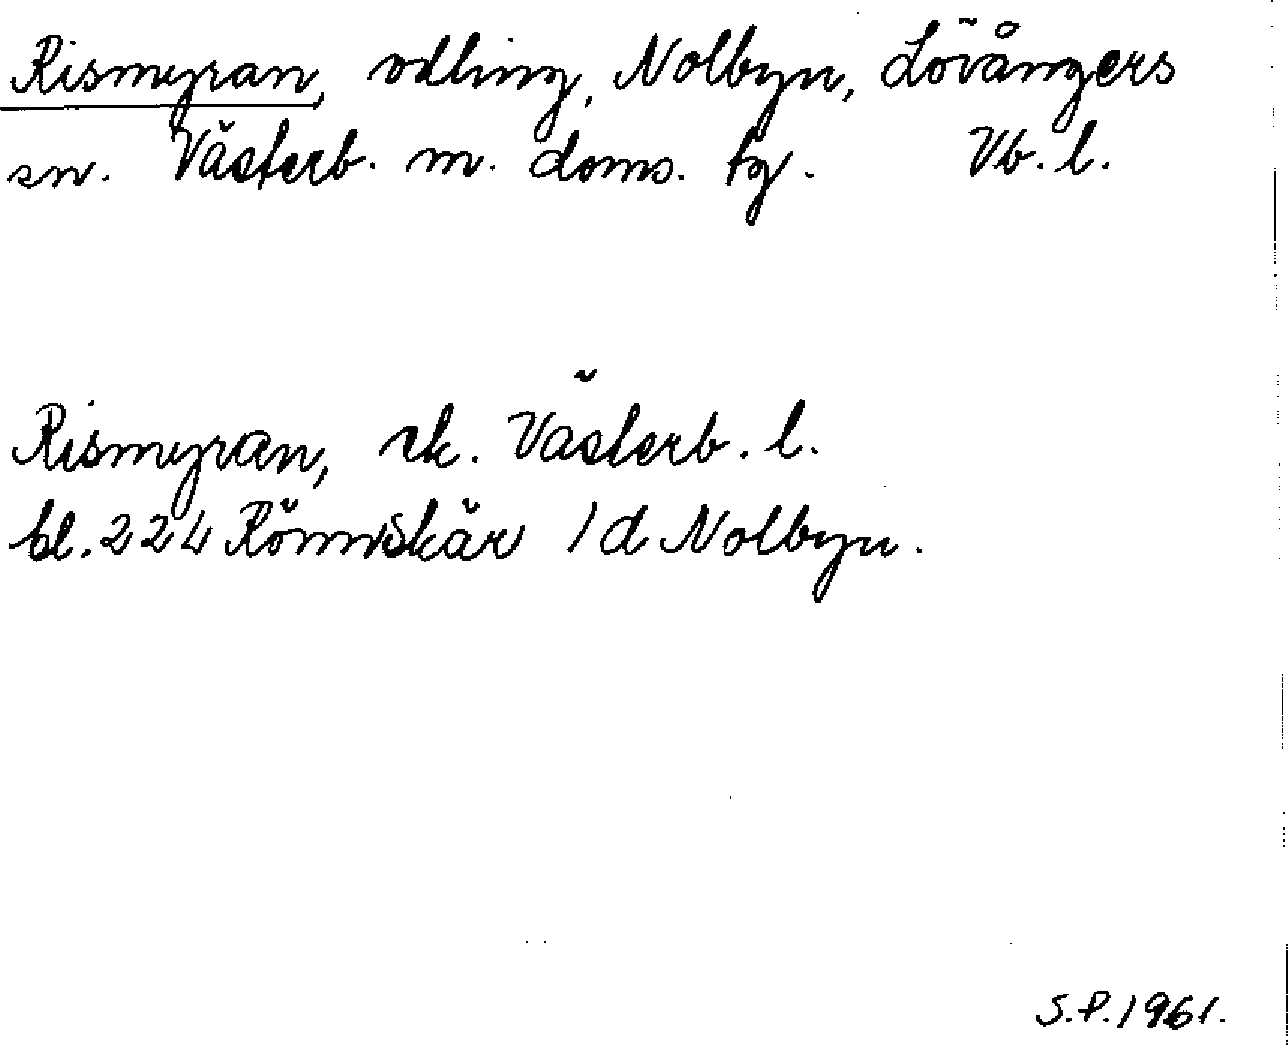 Rismyran, odling, Nolbyn, Lövångers
sn. Västerb. m. doms. tg. Vb. l.
Rismyran, ek. Västerb. l.
bl. 224 Rönnskär 1 d Nolbyn.
S.P. 1961.